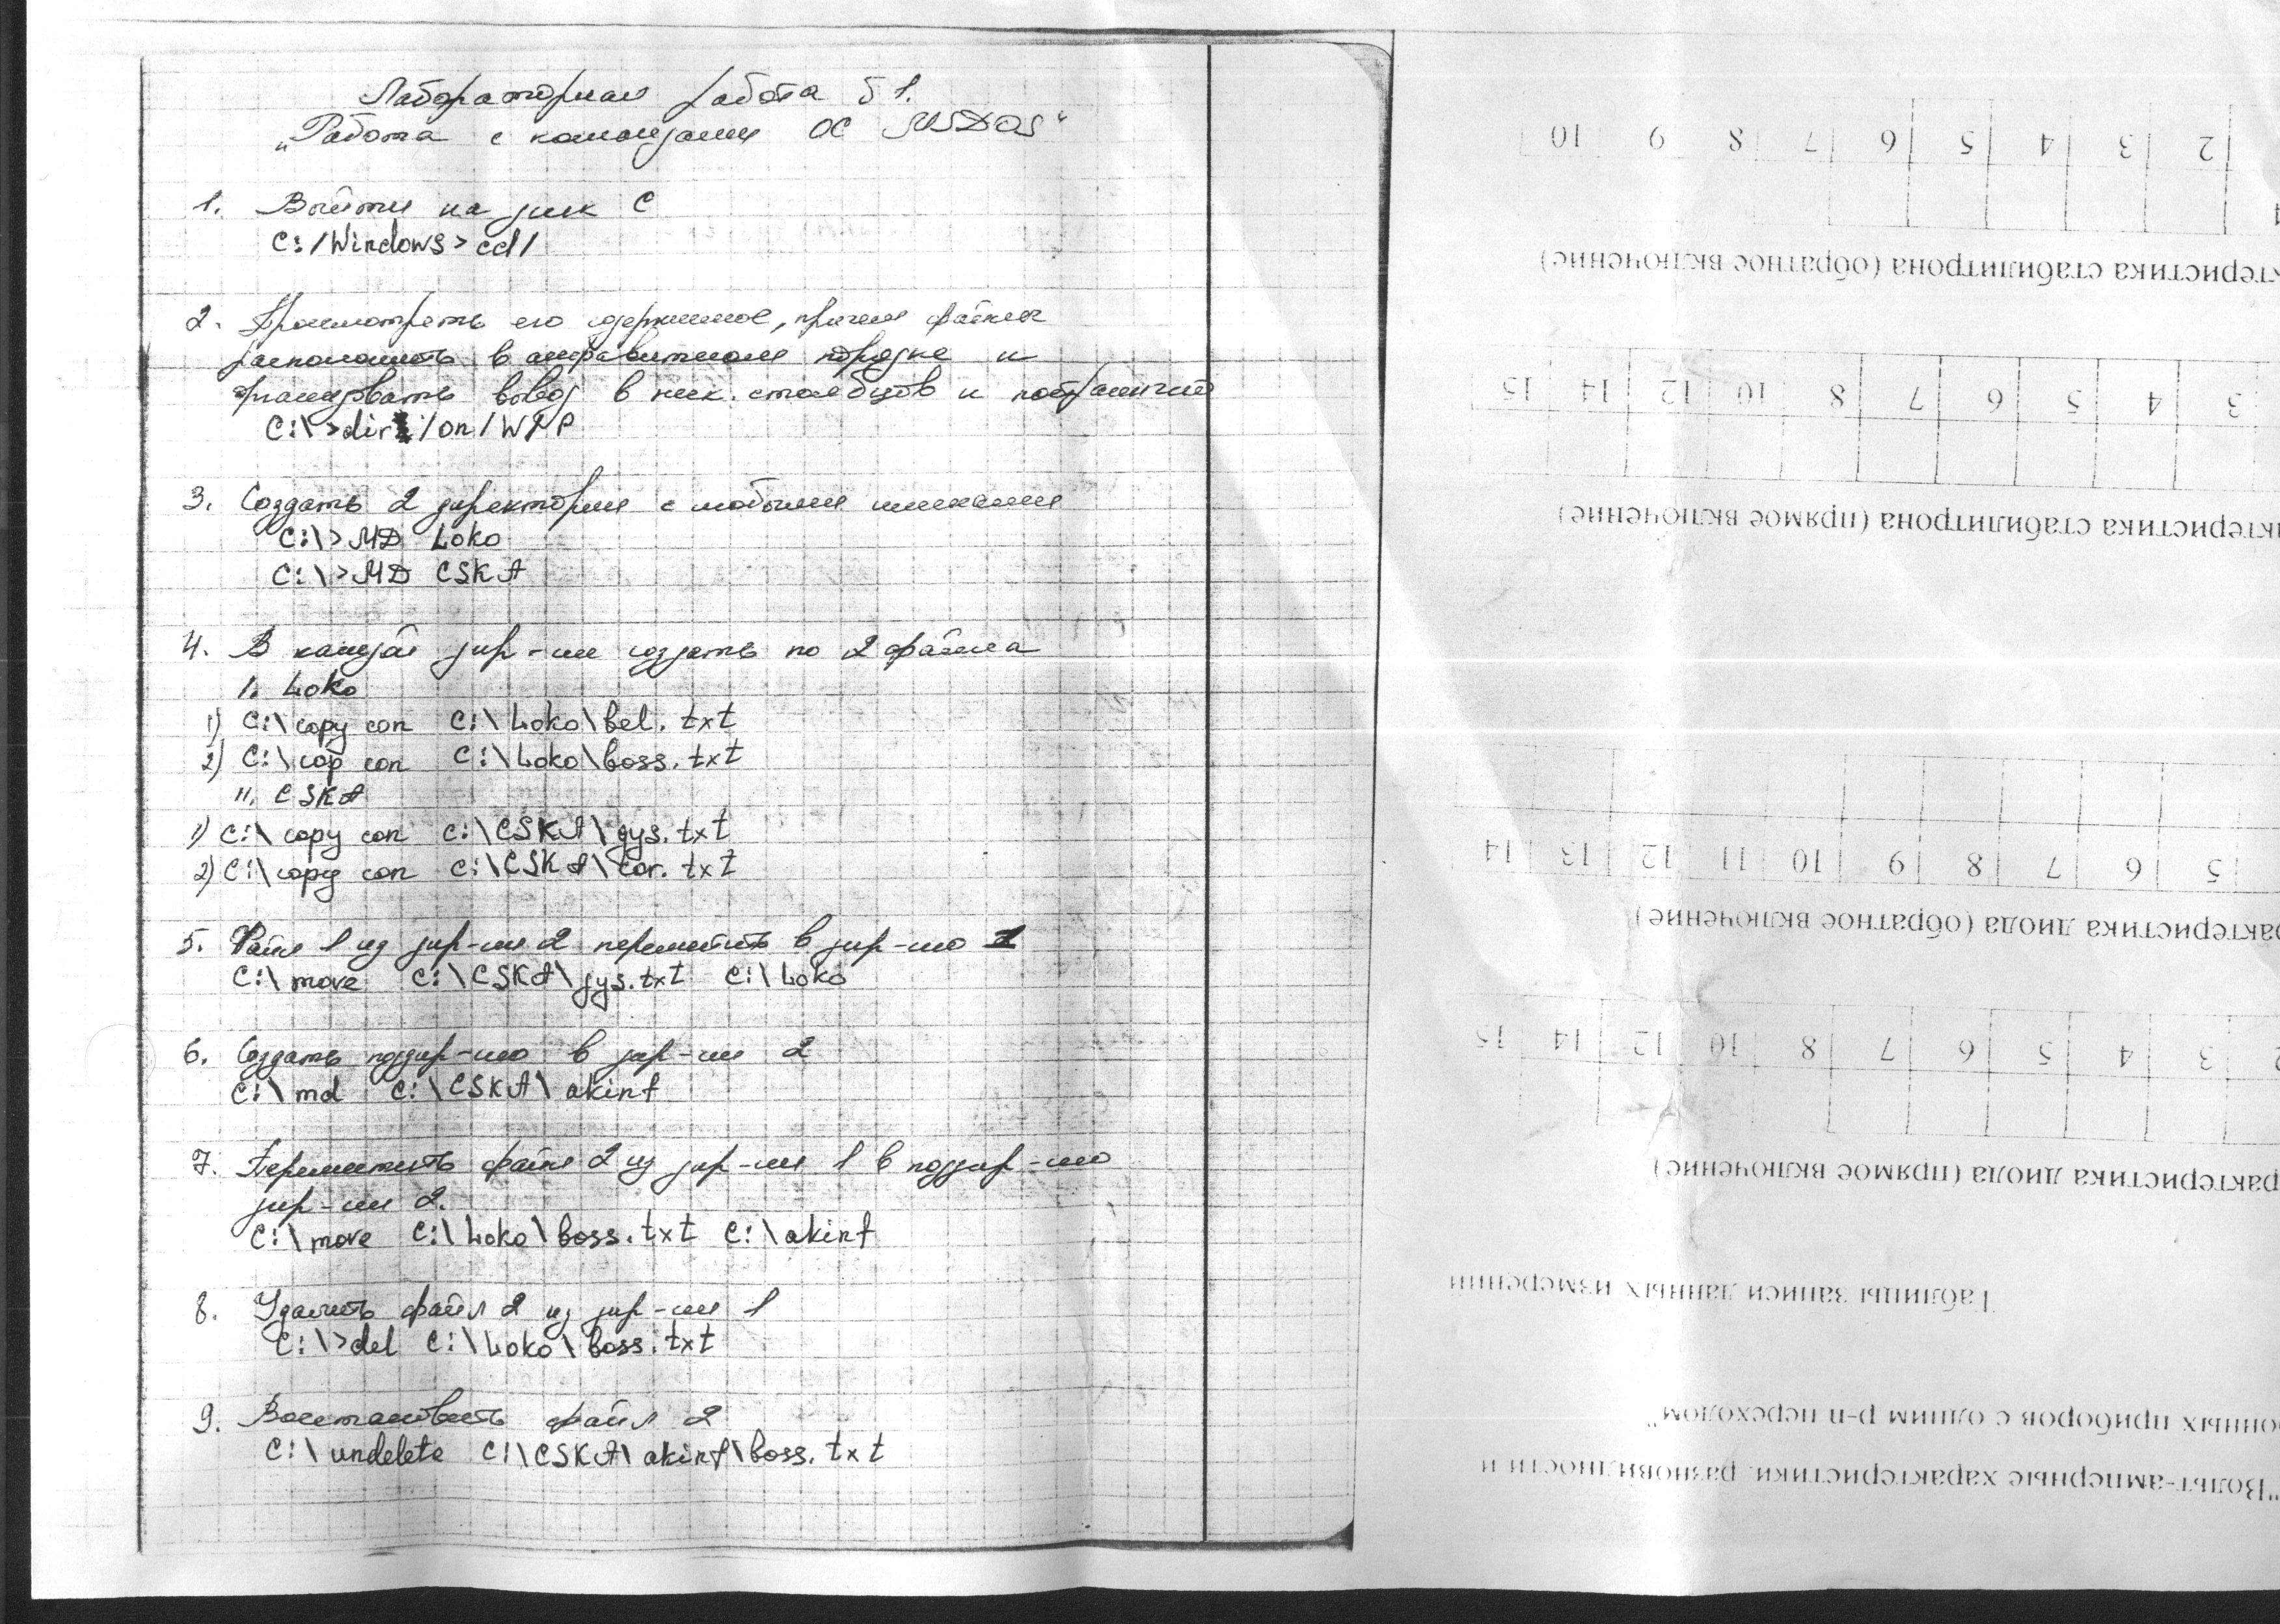 Лабораторная работа 5 1.
„Работа с командами ОС MSDOS“
1. Выйти на диск C
C:/Windows>cd/
2. Просмотреть его содержимое, причем файлы
расположить в алфавитном порядке и
организовать вывод в неск. столбцов и постранично
C:\>dir /on/W/P
3. Создать 2 директории с любыми именами
C:\>MD Loko
C:\>MD CSKA
4. В каждой дир-ии создать по 2 файла
I. Loko
1) C:\copy con C:\Loko\bel.txt
2) C:\cop con C:\Loko\boss.txt
II. CSKA
1) C:\copy con C:\CSKA\gys.txt
2) C:\copy con C:\CSKA\car.txt
5. Файл 1 из дир-ии 2 переместить в дир-ию 1
C:\move C:\CSKA\gys.txt C:\Loko
6. Создать поддир-ию в дир-ии 2
C:\md C:\CSKA\akinf
7. Переместить файл 2 из дир-ии 1 в поддир-ию
дир-ии 2.
C:\move C:\Loko\boss.txt C:\akinf
8. Удалить файл 2 из дир-ии 1
C:\>del C:\Loko\boss.txt
9. Восстановить файл 2
C:\undelete C:\CSKA\akinf\boss.txt
"Вольт-амперные характеристики, разновидности и
онных приборов с одним p-n переходом"
Таблицы записи данных измерении
рактеристика диода (прямое включение)
2 3 4 5 6 7 8 10 12 14 15
рактеристика диода (обратное включение)
5 6 7 8 9 10 11 12 13 14
актеристика стабилитрона (прямое включение)
3 4 5 6 7 8 10 12 14 15
ктеристика стабилитрона (обратное включение)
2 3 4 5 6 7 8 9 10